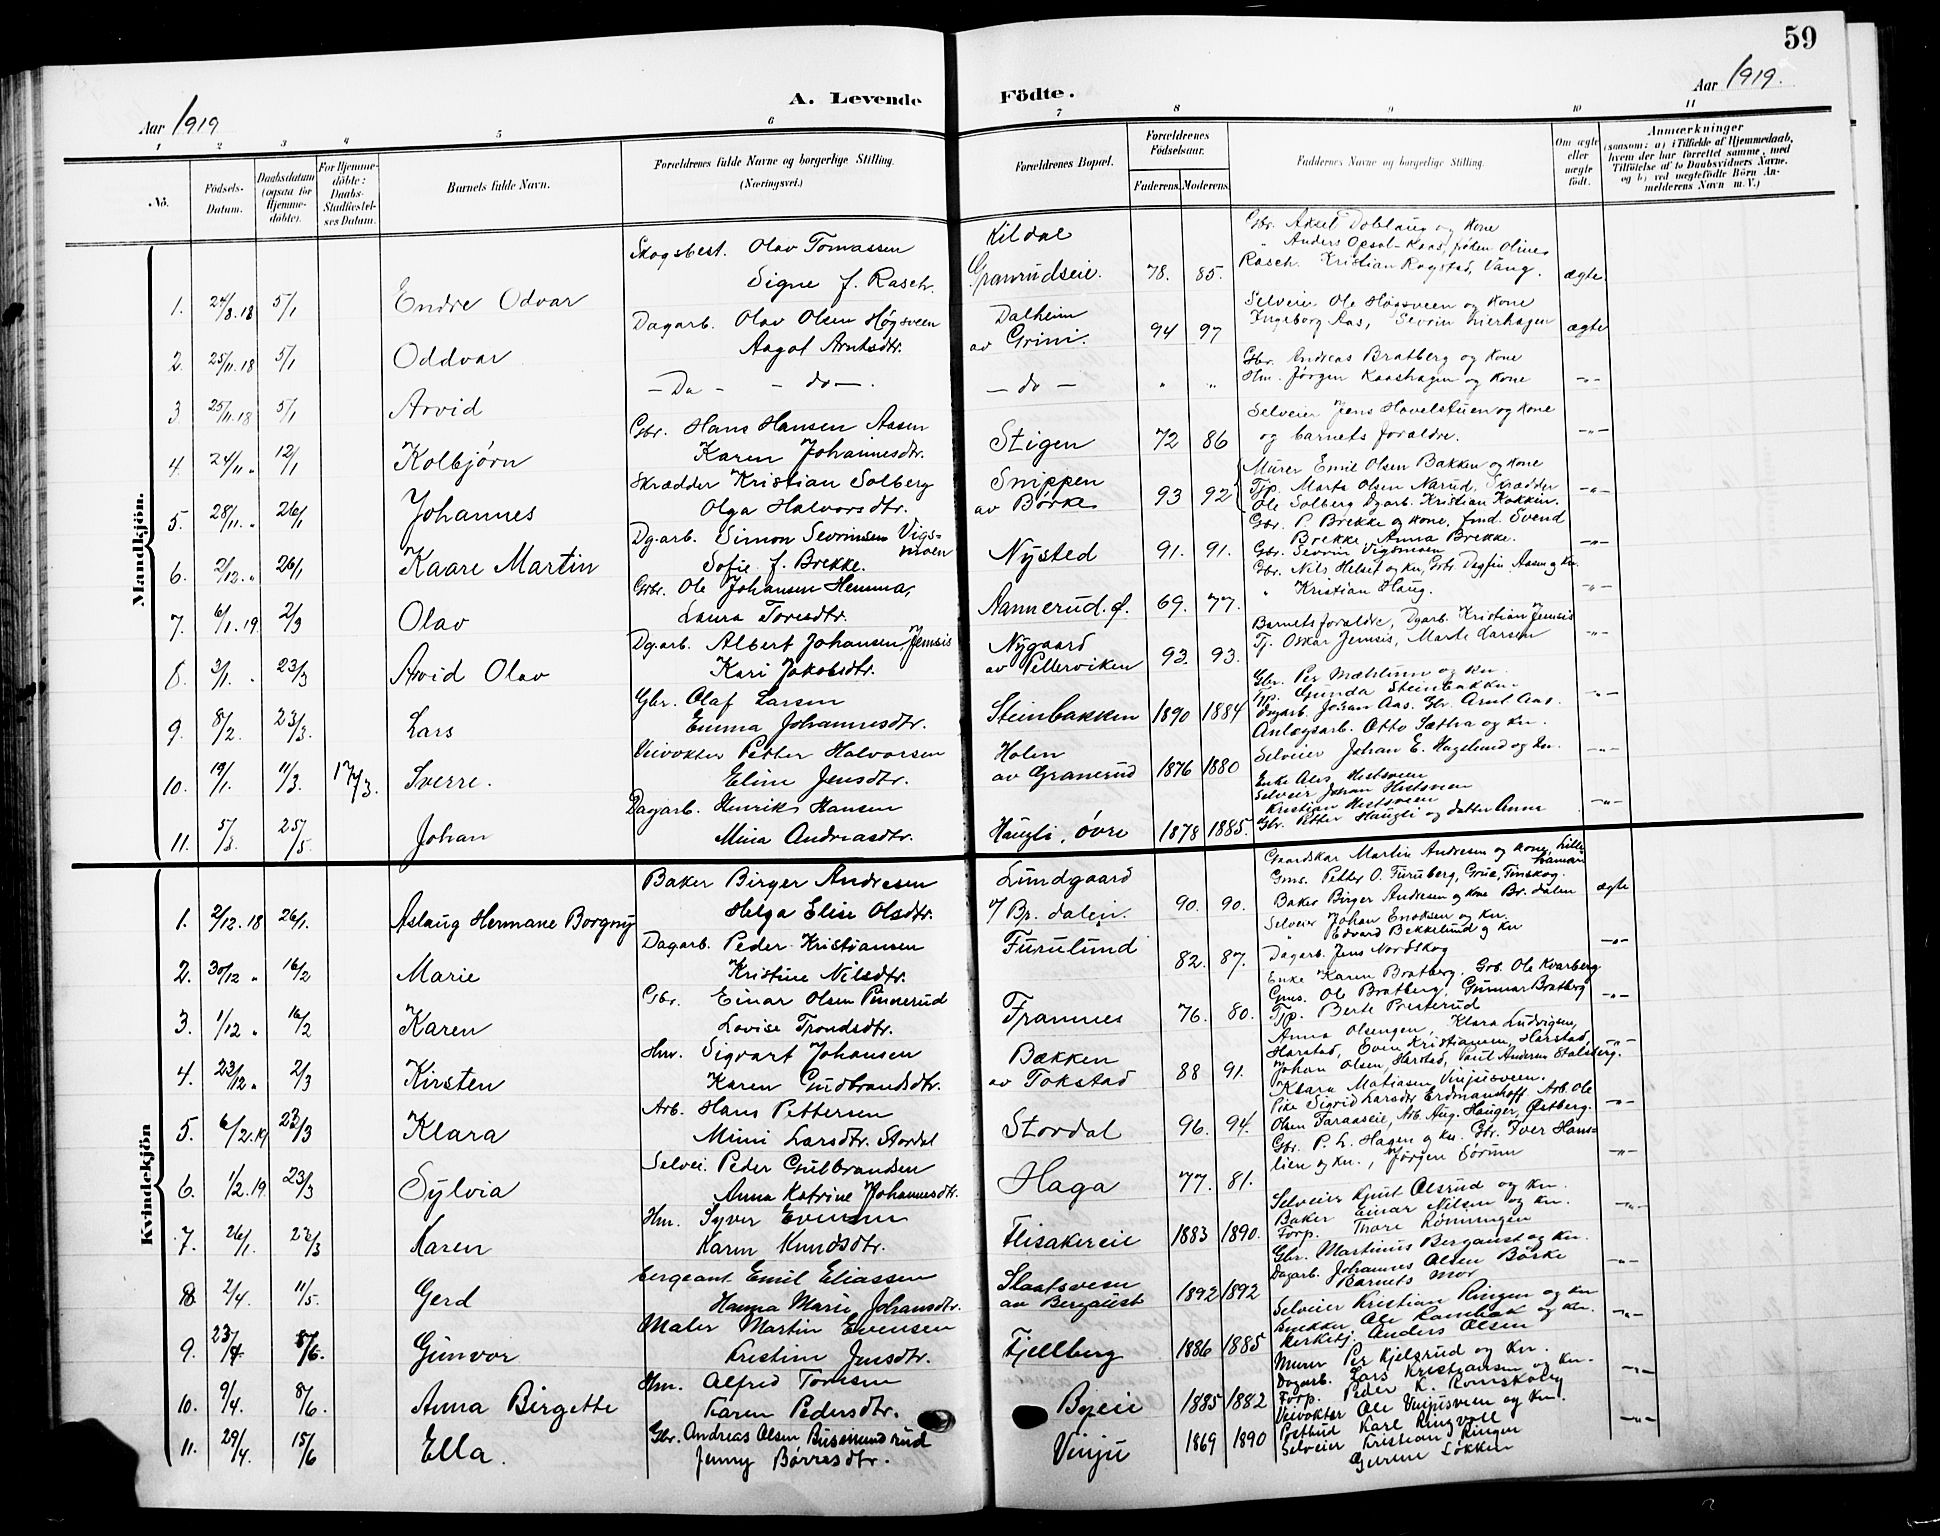 59
A. Levende Födte.
Aar 1919
Aar 1919.
1 2 3 4 5 6 7 8 9 10 11
No.
Födsels-Datum.
Daabsdatum (ogsaa for Hjemme-döbte).
For Hjemme-döbte: Daabs-Stadfæstel-ses Datum.
Barnets fulde Navn.
Forældrenes fulde Navne og borgerlige Stilling. (Næringsvei.)
Forældrenes Bopæl.
Forældrenes Födselsaar.
Faderens. Moderens.
Faddernes Navne og borgerlige Stilling.
Om ægte eller uægte födt.
Anmærkninger
(saasom: a) i Tilfælde af Hjemmedaab, hvem der har forrettet samme, med Tilföielse af to Daabsvidners Navne, og b) ved uægtefödte Börn An-melderens Navn m. V.)
Mandkjön.
1. 24/8.18 5/1 Endre Odvar
Skogsbest. Olav Tomassen
Signe f. Rasch.
Kildal
Granrudseie. 78. 85.
Gbr. Aksel Doblaug og Kone
" Anders Opsal-Kaas, frøken Olines
Rasch. Kristian Rogstad, Vang. ægte
2. 25/11.18 5/1 Oddvar
Dagarb. Olav Olsen Høgsveen
Aagot Arntsdtr.
Dalheim
av Grini. 94 97
Selveier Ole Høgsveen og Kone
Ingeborg Aas, Sevrin Lierhagen ægte
3 25/11.18 5/1 Arvid
— Do — — do —.
— do — " "
Gbr. Andreas Bratberg og Kone
Hm. Jørgen Kaashagen og Kone -"-
4. 24/11 " 12/1 Kolbjørn
Gbr. Hans Hansen Aasen
Karen Johannesdtr.
Stigen 72 86
Selveier Jens Hovelstuen og Kone
og barnets foraldre. -"-
5. 28/11. " 26/1 Johannes
Skrædder Kristian Solberg
Olga Halvorsdtr.
Snippen
av Børke 93 92
Murer Emil Olsen Bakken og Kone
Tjp. Marta Olsen Narud, Skrædder
Ole Solberg Dgarb. Kristian Kokkin. -"-
6. 2/12. " 26/1 Kaare Martin
Dg.arb. Simon Sevrinsen Vigs-moen
Sofie f. Brekke.
Nysted 91. 91.
Gbr. P. Brekke og Kone, fmd. Svend
Brekke, Anna Brekke.
Gbr. Sevrin Vigsmoen -"-
7. 6/1.19. 2/3 Olav
Gbr. Ole Johansen Hemma,
Laura Toresdtr.
Aannerud. ø. 69. 77.
Gbr. Nils Helset og kn, Gbr Dagfin Aasen og Kn.
" Kristian Haug. -"-
8. 3/1. " 23/3 Arvid Olav
Dg.arb. Albert Johansen Jemsis
Kari Jakobsdtr.
Nygaard
av Pellerviken 93. 93.
Barnets foraldre, Dgarb. Kristian Jemsis
Tj. Oskar Jemsis, Marte Larsen -"-
9. 8/2. 23/3. Lars
Gbr. Olaf Larsen
Emma Johannesdtr.
Steinbakken 1890 1884
Gbr. Per Mæhlum og kn.
Tjp. Gunda Steinbakken
Dagarb. Johan Aas. Gbr. Arnt Aas. -"-
10. 19/1. 11/3. 17/3. Sverre.
Veivokter Petter Halvorsen
Eline Jensdtr.
Holen
av Granerud 1876 1880
Anlægsarb. Otto Sætha og kn.
Selveier Johan E. Hagelund og kn. -"-
11. 5/3. 25/5. Johan
Dagarb. Henrik Hansen
Mina Andreasdtr.
Haugli, øvre 1878 1885.
Selveier Johan Hestsveen
Kristian Hestsveen
Gbr. Petter Haugli og datter Anna -"-
Kvindekjön
1. 2/12.18 26/1. Aslaug Hermane Borgny
Baker Birger Andresen
Helga Elise Olsdtr.
Lundgaard
/ Br. dalen. 90. 90.
Gaardskar Martin Andresen og Kone, Lille-hamar
Gms. Petter O. Furuberg, Grue, Finskog.
Baker Birger Andresen og Kone Br. dalen ægte
2. 30/12 " 16/2 Marie
Dagarb. Peder Kristiansen
Kristine Nilsdtr.
Furulund 82. 87.
Selveier Johan Enoksen og kn.
" Edvard Bekkelund og kn
Dagarb. Jens Nordskog -"-
3. 1/12 " 16/2 Karen
Gbr. Einar Olsen Pinnerud
Lovise Trondsdtr.
Framnes 76. 80.
Enke Karen Bratberg. Gbr. Ole Kvarberg
Gms. Ole Bratberg, Gunnar Bratberg
Tjp. Berte Presterud -"-
4. 23/12 " 2/3 Kirsten
Hm. Sigvart Johansen
Karen Gudbrandsdtr.
Bækken
av Tokstad 88 91.
Anna Olsengen, Klara Ludvigsen,
Harstad, Even Kristiansen, Harstad,
Johan Olsen, Harstad, Paul Andersen Stalsberg. -"-
5. 6/2.19 23/3 Klara
Arb. Hans Pettersen
Mimi Larsdtr. Stordal
Stordal 96. 94.
Klara Matiasen, Vinjusveen.
Pike Sigrid Larsdtr Erdmanshoff Arb Ole
Olsen Faraaseie, Arb. Aug. Hauger, Østberg. -"-
6. 1/2.19. 23/3 Sylvia
Selvei. Peder Gulbrandsen
Anna Katrine Johannesdtr.
Haga 77. 81.
Gbr. P. L. Hagen og kn. Gbr. Iver Hans-
lien og kn., Jørgen Sørum -"-
7. 26/1. 23/3 Karen
Hm. Syver Evensen
Karen Knudsdtr.
Flisakereie 1883 1890.
Selveier Knut Alsrud og kn.
Baker Einar Nilsen og kn.
Forp. Thore Rønningen -"-
8. 2/4. 11/5. Gerd
Sergeant Emil Eliassen
Hanna Marie Johansdtr.
Slaatsveen
av Bergaust 1892 1892
Gbr. Martinus Bergaust og kn.
Dagarb. Johannes Olsen Børke
Barnets Mor -"-
9. 23/4. 8/6. Gunvor
Maler Martin Evensen
Kristine Jensdtr.
Fjellberg 1886 1885
Selveier Kristian Ringen og kn
Snekker Ole Ramhak og kn.
Kirketj. Anders Olsen -"-
10. 9/4. 8/6. Anna Birgette
Hm. Alfred Tomsen
Karen Pedersdtr.
Byeie 1885 1882
Murer Per Kjelsrud og kn.
Dagarb. Lars Kristiansen og kn.
Forp. Peder K. Romskoug -"-
11. 29/4. 15/6 Ella.
Gbr. Andreas Olsen Busmundrud
Jenny Børresdtr.
Vinju 1869 1890
Veivokter Ole Vinjusveen og kn.
Postbud Karl Ringvoll
Selveier Kristian Ringen
Gurine Løkken -"-